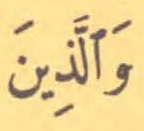 وَٱلَّذِينَ